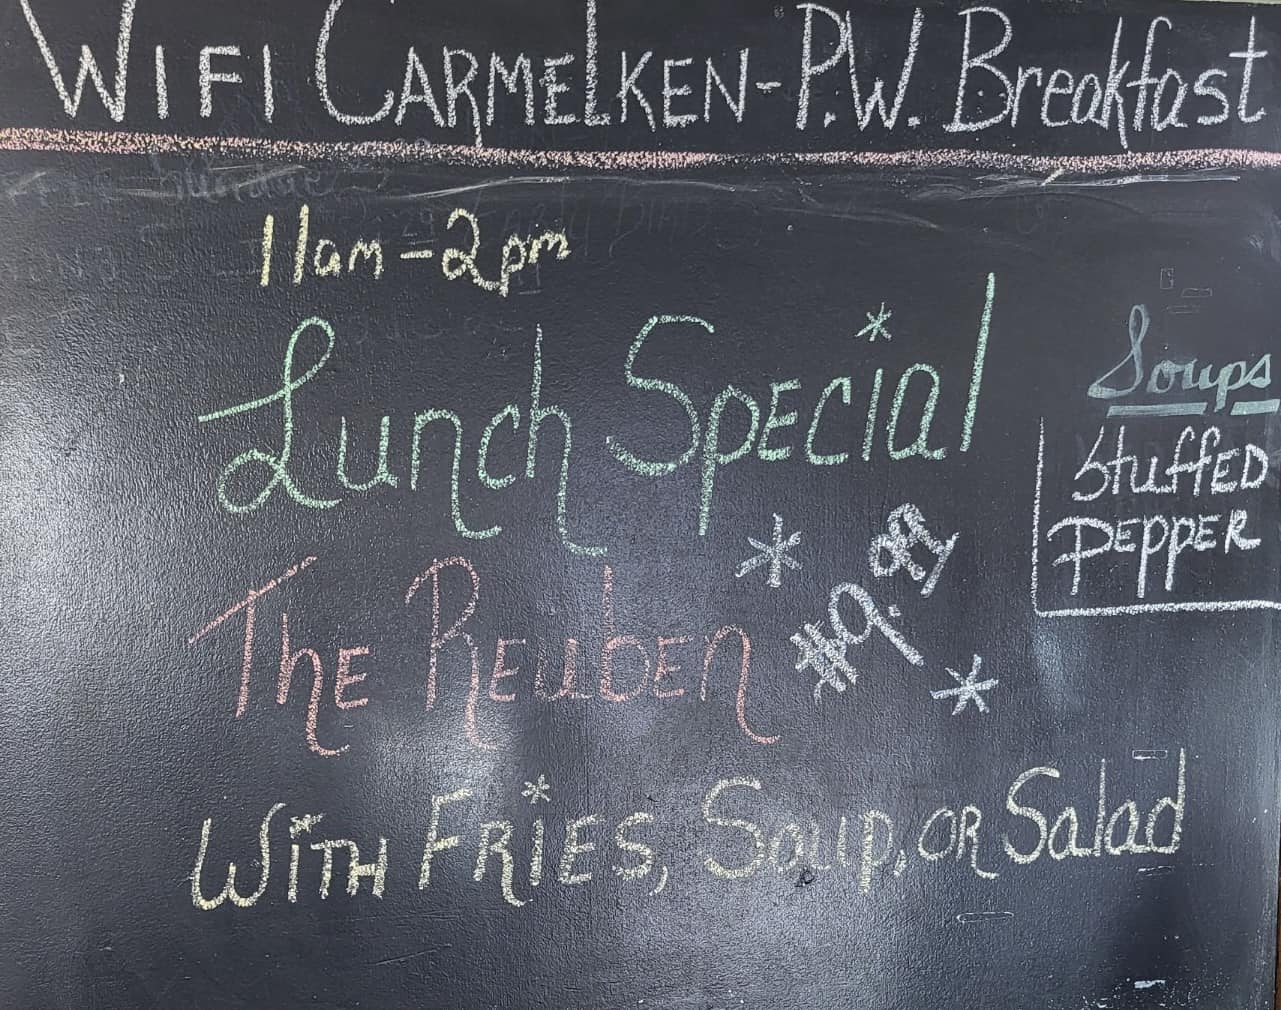 WIFI CARMELKEN-P.W. Breakfast
11am-2pm
Lunch Special
The Reuben
#9.99
With Fries, Soup, or Salad
Soups
Stuffed
Pepper